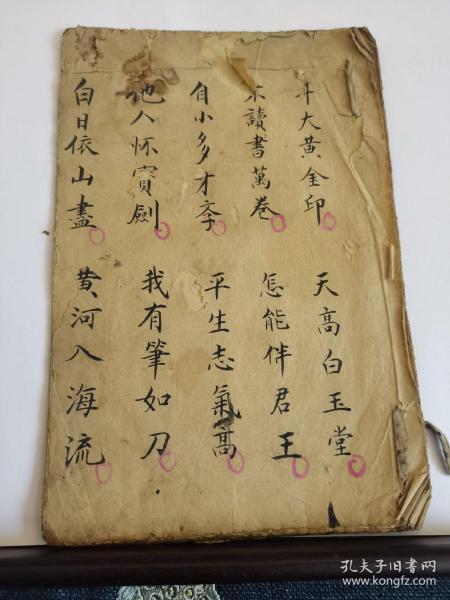 斗大黄金印 天高白玉堂
不讀書萬卷 怎能伴君王
自小多才斈 平生志氣高
他人怀寳劍 我有筆如刀
白日依山盡 黄河入海流
孔夫子旧书网
www.kongfz.com